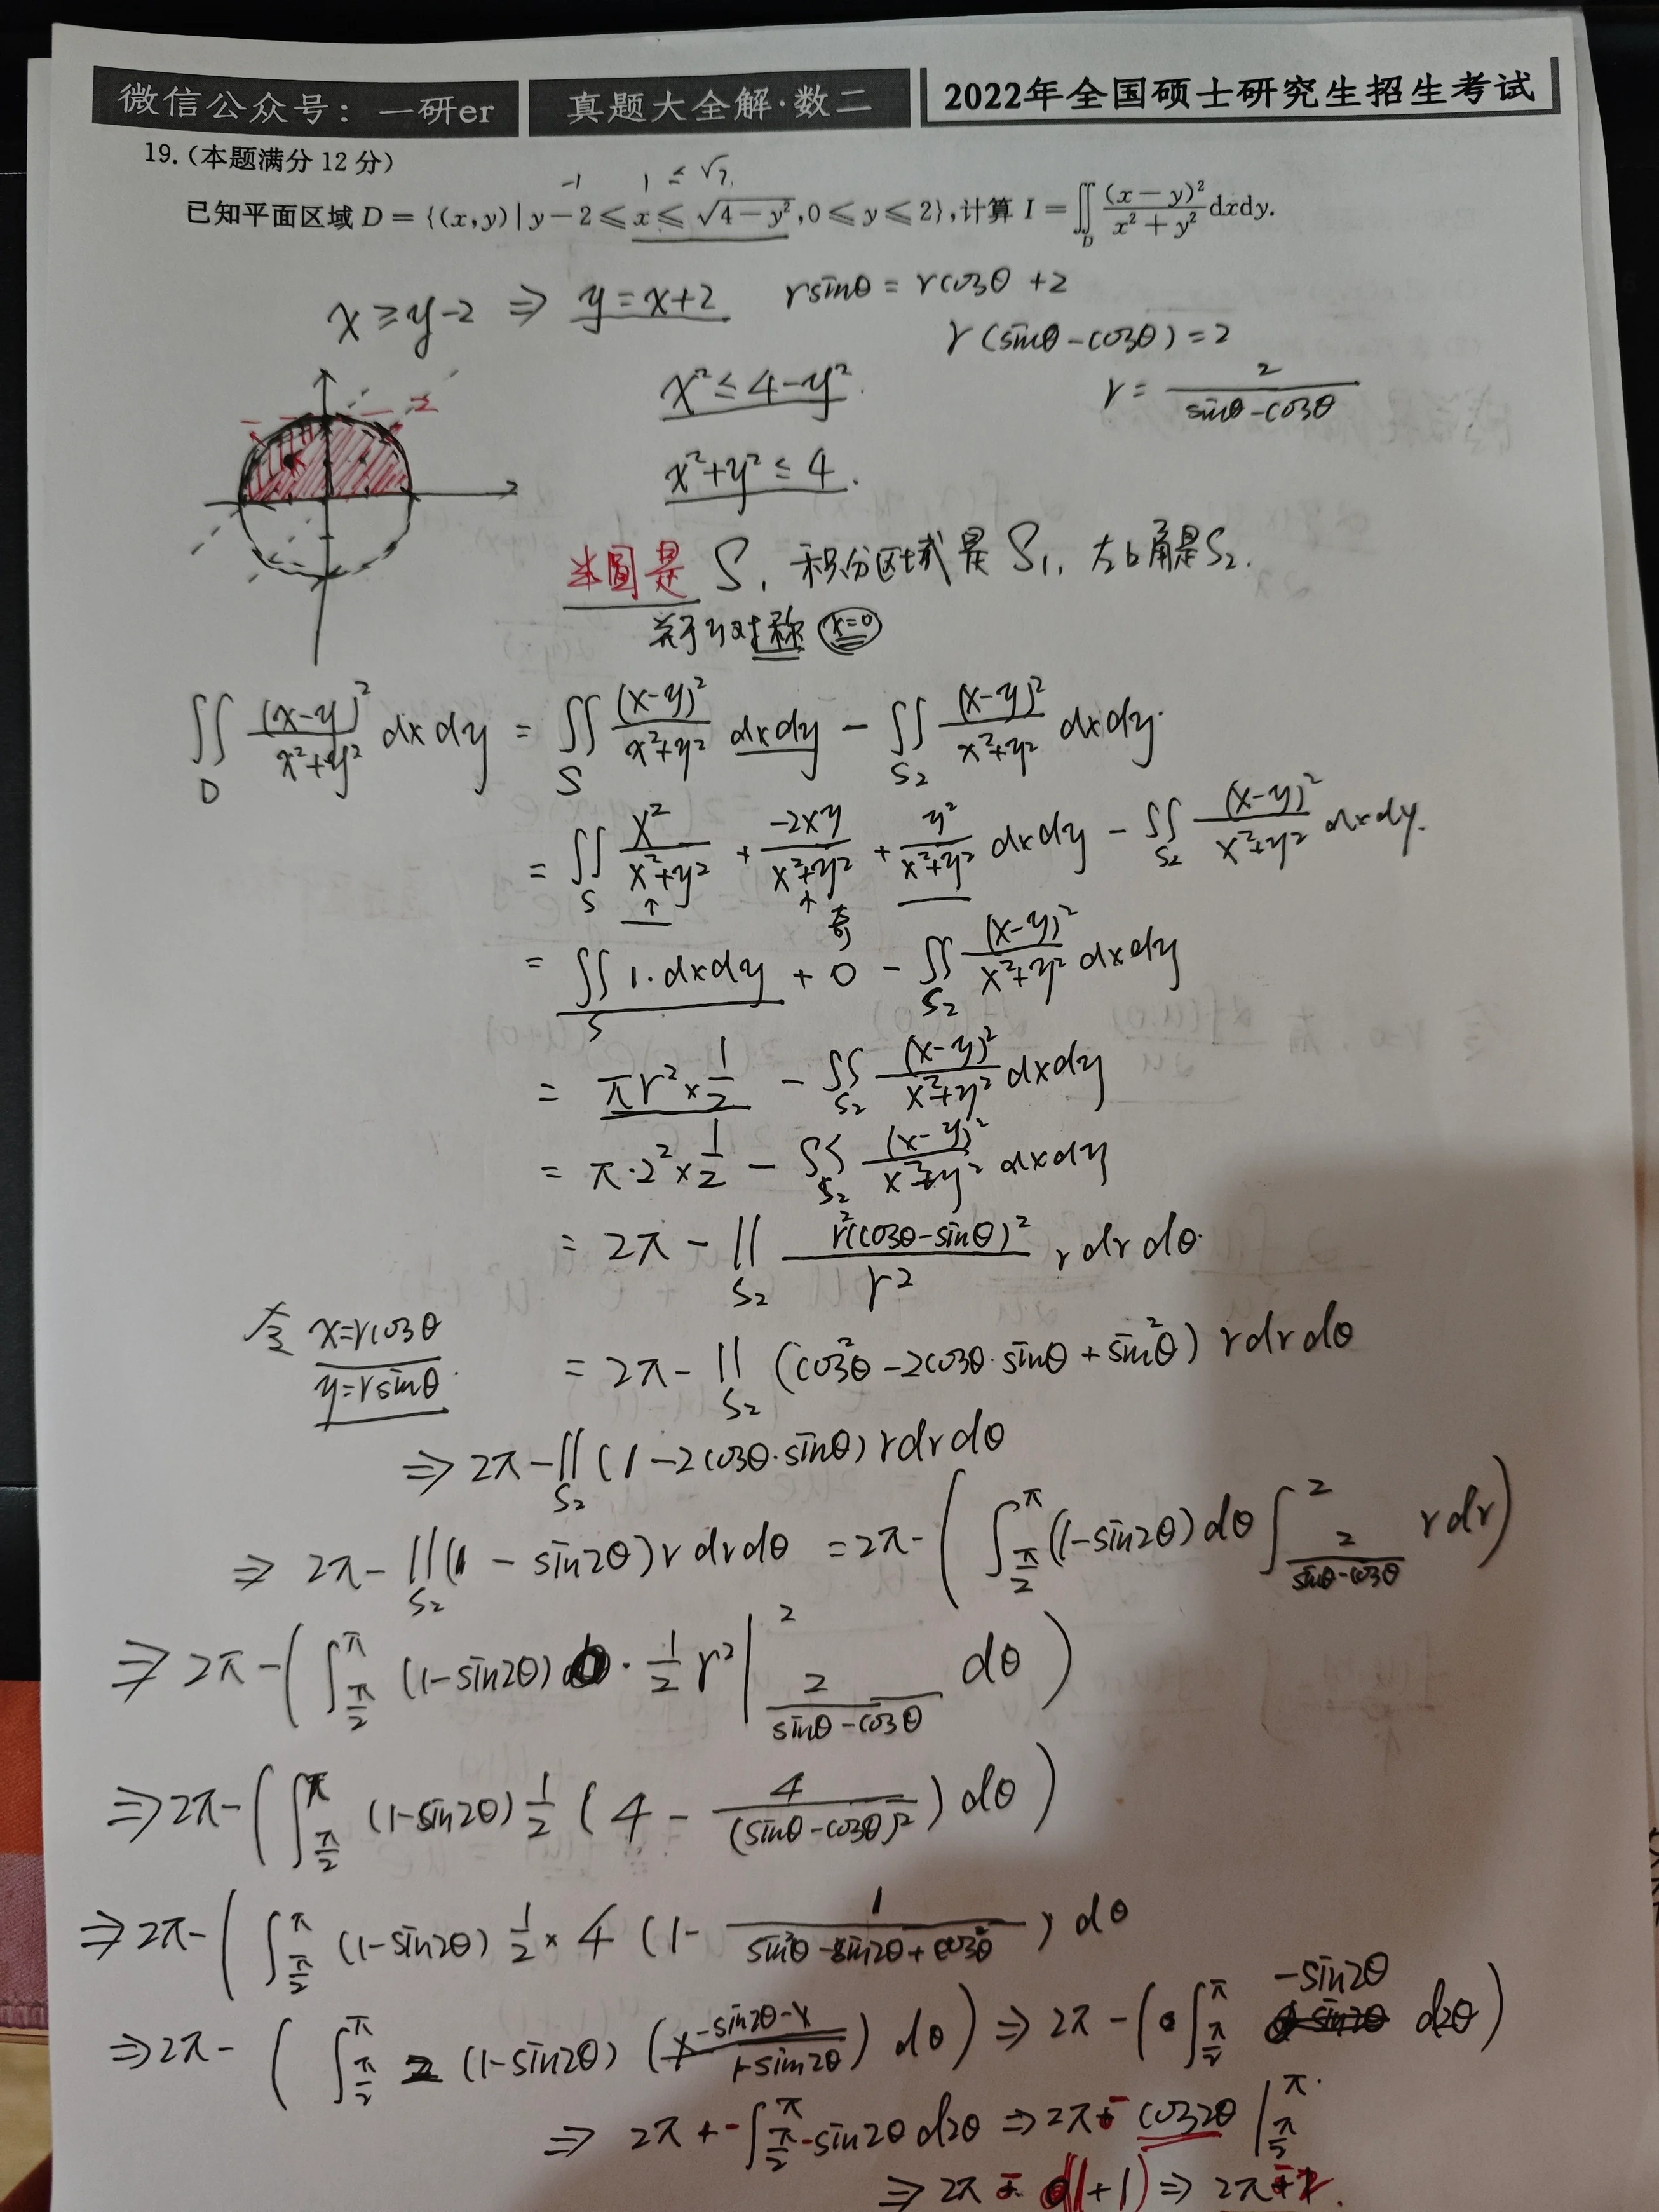 微信公众号：一研er 真题大全解·数二 2022年全国硕士研究生招生考试
19.(本题满分 12 分)
-1 1 ≤ √3
已知平面区域 D = {(x,y) | y − 2 ≤ x ≤ √(4 − y²), 0 ≤ y ≤ 2}, 计算 I = ∬_D (x − y)²/(x² + y²) dxdy.
x ≥ y-2 ⇒ y = x+2 rsinθ = rcosθ +2
r(sinθ-cosθ) = 2
x² ≤ 4-y². r = 2/(sinθ-cosθ)
x²+y² ≤ 4.
半圆是 S, 积分区域是 S₁, 左上角是S₂.
关于y对称 x=0
∬_D (x-y)²/(x²+y²) dxdy = ∬_S (x-y)²/(x²+y²) dxdy - ∬_S₂ (x-y)²/(x²+y²) dxdy.
= ∬_S x²/(x²+y²) + -2xy/(x²+y²) + y²/(x²+y²) dxdy - ∬_S₂ (x-y)²/(x²+y²) dxdy.
↑ ↑ 奇
= ∬_S 1·dxdy + 0 - ∬_S₂ (x-y)²/(x²+y²) dxdy
= πr²×1/2 - ∬_S₂ (x-y)²/(x²+y²) dxdy
= π·2²×1/2 - ∬_S₂ (x-y)²/(x²+y²) dxdy
= 2π - ∬_S₂ r²(cosθ-sinθ)²/r² r dr dθ.
令 x=rcosθ
y=rsinθ.
= 2π - ∬_S₂ (cos²θ - 2cosθ·sinθ + sin²θ) r dr dθ
⇒ 2π - ∬_S₂ (1 - 2cosθ·sinθ) r dr dθ
⇒ 2π - ∬_S₂ (1 - sin2θ) r dr dθ = 2π - ( ∫_{π/2}^{π} (1-sin2θ) dθ ∫_{2/(sinθ-cosθ)}^{2} r dr )
⇒ 2π - ( ∫_{π/2}^{π} (1-sin2θ) · 1/2 r² |_{2/(sinθ-cosθ)}^{2} dθ )
⇒ 2π - ( ∫_{π/2}^{π} (1-sin2θ) 1/2 ( 4 - 4/(sinθ-cosθ)² ) dθ )
⇒ 2π - ( ∫_{π/2}^{π} (1-sin2θ) 1/2 × 4 (1 - 1/(sin²θ - sin2θ + cos²θ)) dθ
⇒ 2π - ( ∫_{π/2}^{π} 2 (1-sin2θ) ( 1-sin2θ-1/(1-sin2θ) ) dθ ) ⇒ 2π - ( ∫_{π/2}^{π} -sin2θ d2θ )
⇒ 2π + - ∫_{π/2}^{π} -sin2θ d2θ ⇒ 2π - cos2θ |_{π/2}^{π}.
⇒ 2π - (1+1) ⇒ 2π-2.